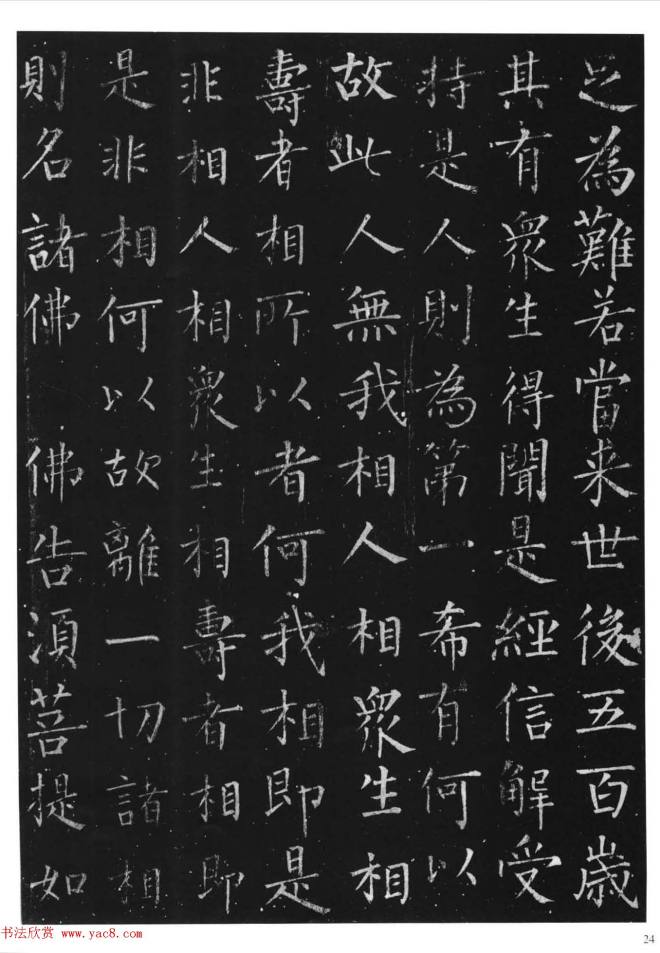 足為難若當来世後五百歳
其有衆生得聞是經信解受
持是人則為第一希有何以
故此人無我相人相衆生相
壽者相所以者何我相即是
非相人相衆生相壽者相即
是非相何以故離一切諸相
則名諸佛 佛告須菩提如
书法欣赏 www.yac8.com
24